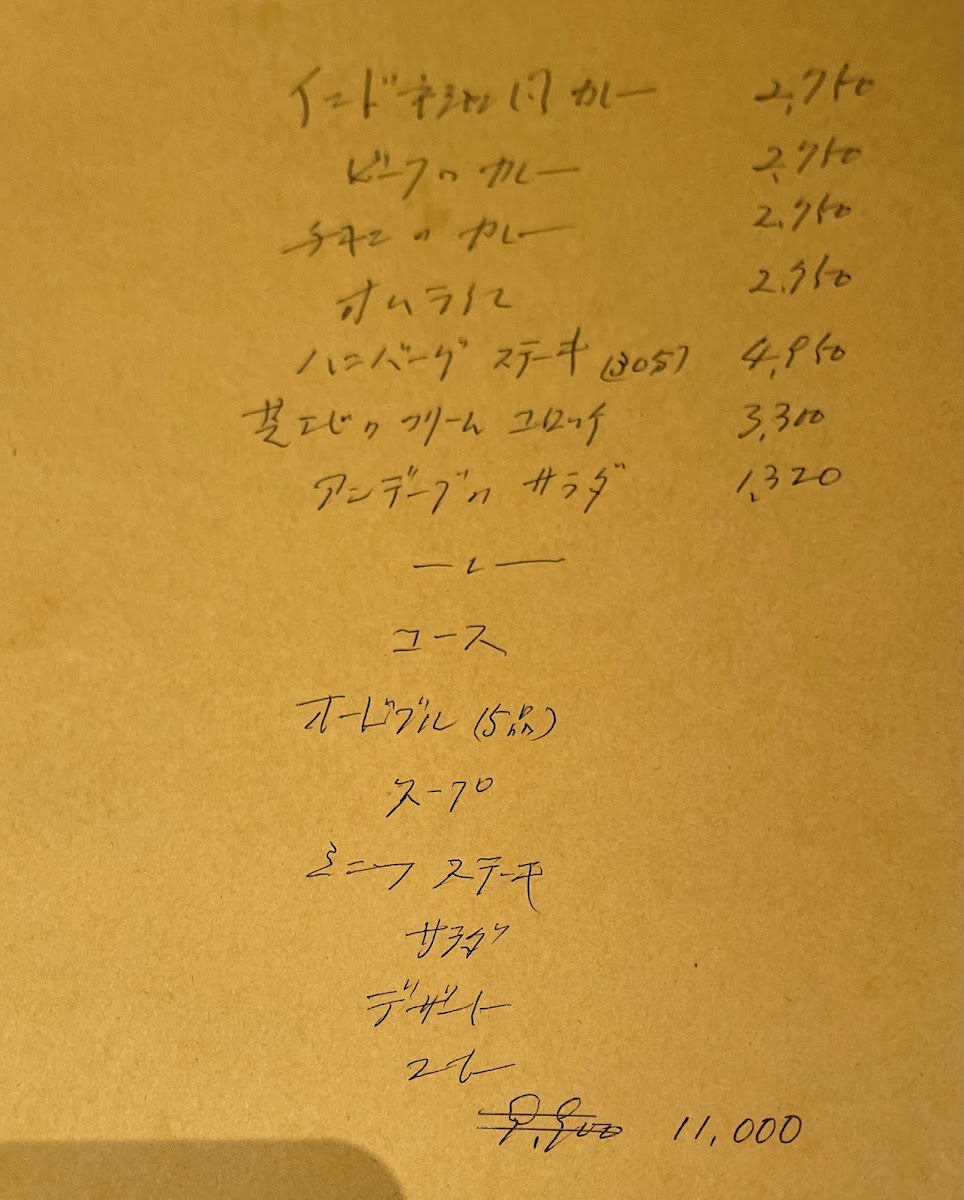 インドネシャン カレー 2,750
ビーフの カレー 2,750
チキンの カレー 2,750
オムライス 2,750
ハンバーグ ステーキ 4,950
芝エビの クリーム コロッケ 3,300
アンディーブの サラダ 1,320
コース
オードブル (5品)
スープ
ミニッツ ステーキ
サラダ
デザート
コーヒー
9,900 11,000